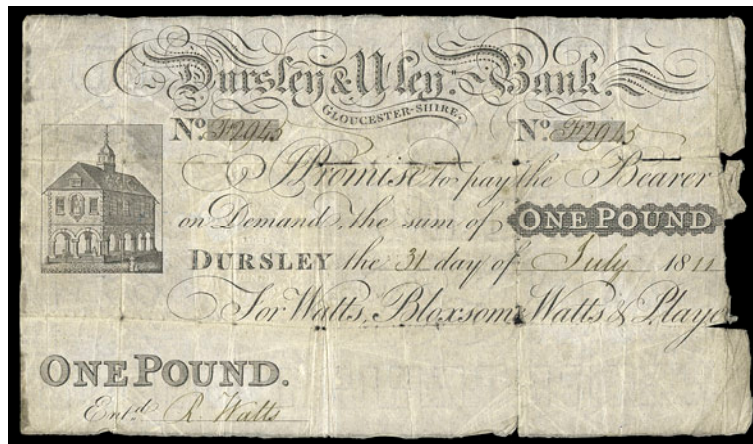 Dursley & Uley Bank.
GLOUCESTER-SHIRE.
No. No.
I Promise to pay the Bearer
on Demand, the sum of ONE POUND
DURSLEY the 31 day of July 1811
For Watts, Bloxsome Watts & Playe
ONE POUND.
Entd. R. Watts